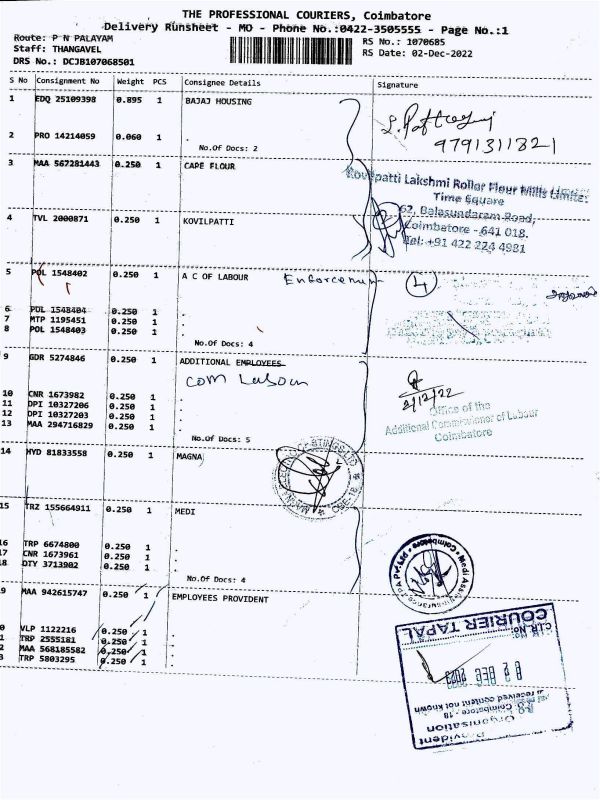 THE PROFESSIONAL COURIERS, Coimbatore
Delivery Runsheet - MO - Phone No.:0422-3505555 - Page No.:1
Route: P N PALAYAM
RS No.: 1070685
Staff: THANGAVEL
RS Date: 02-Dec-2022
DRS No.: DCJB107068501
S No Consignment No Weight PCS Consignee Details Signature
1 EDQ 25109398 0.895 1 BAJAJ HOUSING
2 PRO 14214059 0.060 1 .
9791311821
No.Of Docs: 2
3 MAA 567281443 0.250 1 CAPE FLOUR
Kovilpatti Lakshmi Roller Flour Mills Limited
Time Square
62, Balasundaram Road,
Coimbatore - 641 018.
Tel: +91 422 224 4981
4 TVL 2000871 0.250 1 KOVILPATTI
5 POL 1548402 0.250 1 A C OF LABOUR Enforcement 4
6 POL 1548404 0.250 1 .
7 MTP 1195451 0.250 1 .
8 POL 1548403 0.250 1 .
No.Of Docs: 4
9 GDR 5274846 0.250 1 ADDITIONAL EMPLOYEES
COM Labour
2/12/22
10 CNR 1673982 0.250 1 .
11 DPI 10327206 0.250 1 .
12 DPI 10327203 0.250 1 .
13 MAA 294716829 0.250 1 .
No.Of Docs: 5
Office of the
Additional Commissioner of Labour
Coimbatore
14 HYD 81833558 0.250 1 MAGNA
15 TRZ 155664911 0.250 1 MEDI
16 TRP 6674800 0.250 1 .
17 CNR 1673961 0.250 1 .
18 DTY 3713902 0.250 1 .
No.Of Docs: 4
9 MAA 942615747 0.250 1 EMPLOYEES PROVIDENT
0 VLP 1122216 0.250 1 .
1 TRP 2555181 0.250 1 .
2 MAA 568185582 0.250 1 .
3 TRP 5803295 0.250 1 .
COURIER TAPAL
C.I.R. No.
received content not known
Coimbatore - 18
Organisation
Provident